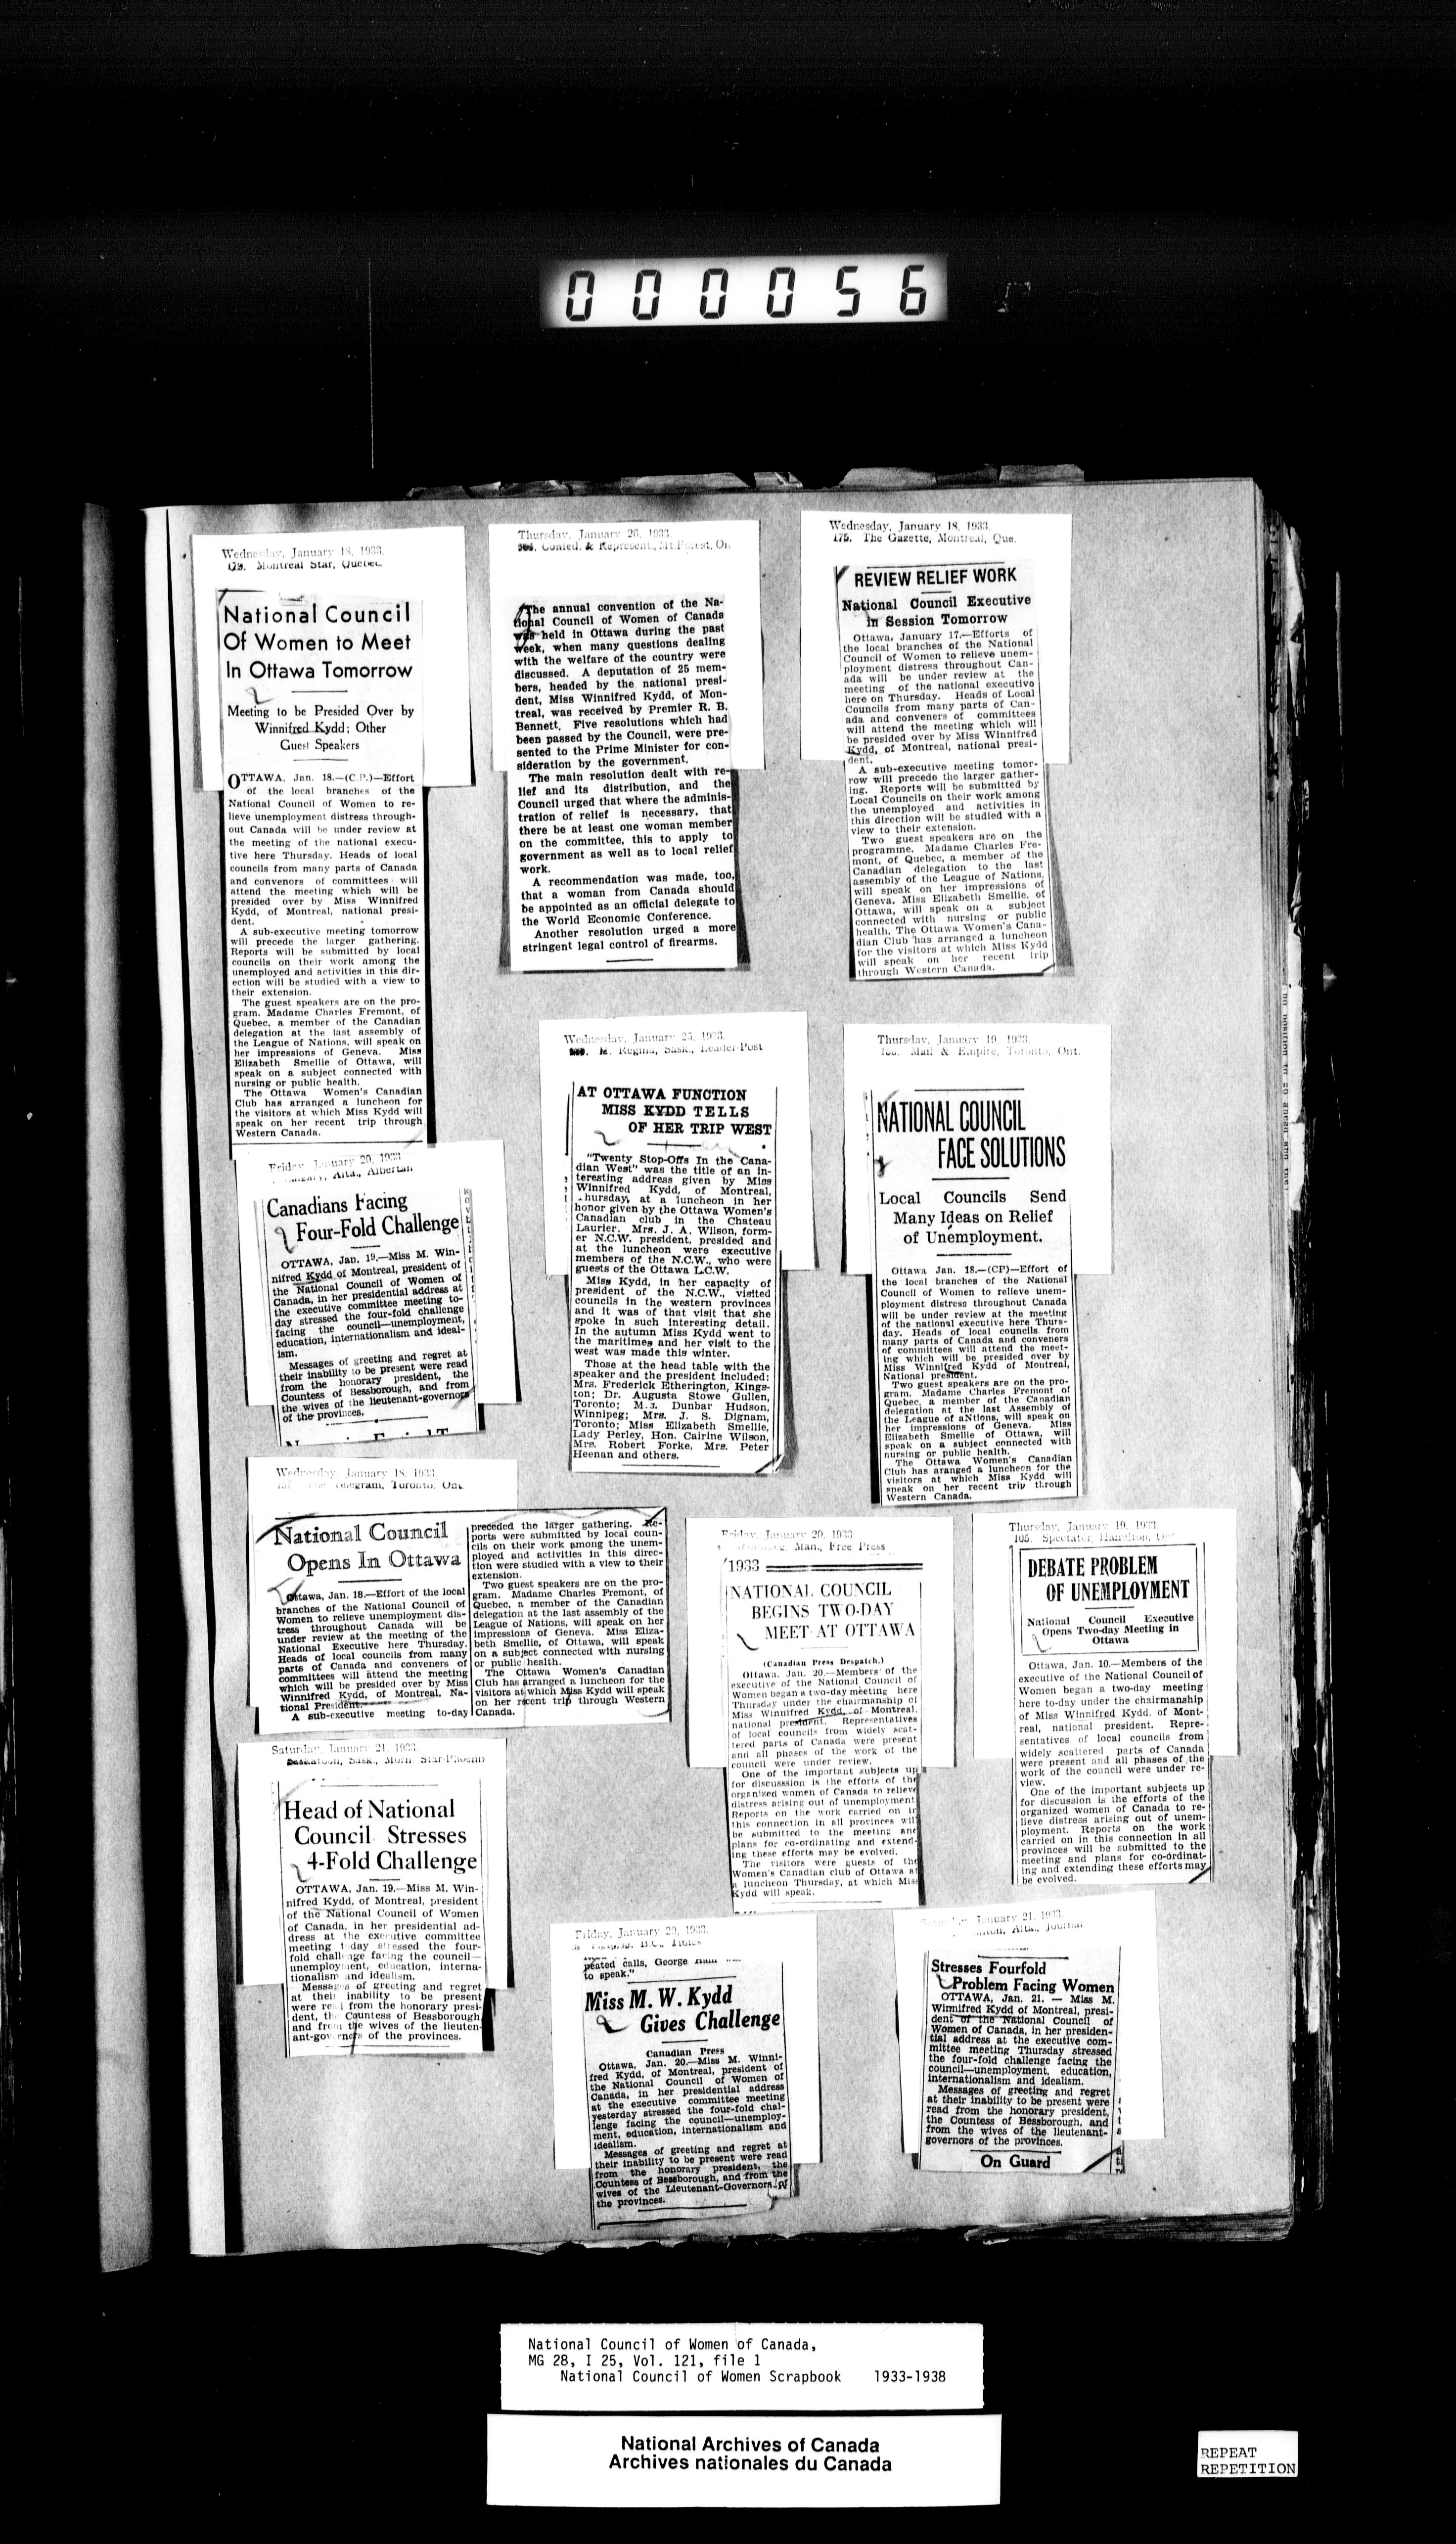 000056
Wednesday, January 18, 1933.
Montreal Star, Quebec
National Council
Of Women to Meet
In Ottawa Tomorrow
Meeting to be Presided Over by
Winnifred Kydd; Other
Guest Speakers
OTTAWA, Jan. 18.—(C.P.)—Effort
of the local branches of the
National Council of Women to re-
lieve unemployment distress through-
out Canada will be under review at
the meeting of the national execu-
tive here Thursday. Heads of local
councils from many parts of Canada
and convenors of committees will
attend the meeting which will be
presided over by Miss Winnifred
Kydd, of Montreal, national presi-
dent.
A sub-executive meeting tomorrow
will precede the larger gathering.
Reports will be submitted by local
councils on their work among the
unemployed and activities in this dir-
ection will be studied with a view to
their extension.
The guest speakers are on the pro-
gram. Madame Charles Fremont, of
Quebec, a member of the Canadian
delegation at the last assembly of
the League of Nations, will speak on
her impressions of Geneva. Miss
Elizabeth Smellie of Ottawa, will
speak on a subject connected with
nursing or public health.
The Ottawa Women's Canadian
Club has arranged a luncheon for
the visitors at which Miss Kydd will
speak on her recent trip through
Western Canada.
Thursday, January 26, 1933.
Confed. & Represent., Mt. Forest, On.
The annual convention of the Na-
tional Council of Women of Canada
was held in Ottawa during the past
week, when many questions dealing
with the welfare of the country were
discussed. A deputation of 25 mem-
bers, headed by the national presi-
dent, Miss Winnifred Kydd, of Mon-
treal, was received by Premier R. B.
Bennett. Five resolutions which had
been passed by the Council, were pre-
sented to the Prime Minister for con-
sideration by the government.
The main resolution dealt with re-
lief and its distribution, and the
Council urged that where the adminis-
tration of relief is necessary, that
there be at least one woman member
on the committee, this to apply to
government as well as to local relief
work.
A recommendation was made, too,
that a woman from Canada should
be appointed as an official delegate to
the World Economic Conference.
Another resolution urged a more
stringent legal control of firearms.
Wednesday, January 18, 1933.
175. The Gazette, Montreal, Que.
REVIEW RELIEF WORK
National Council Executive
in Session Tomorrow
Ottawa, January 17.—Efforts of
the local branches of the National
Council of Women to relieve unem-
ployment distress throughout Can-
ada will be under review at the
meeting of the national executive
here on Thursday. Heads of Local
Councils from many parts of Can-
ada and conveners of committees
will attend the meeting which will
be presided over by Miss Winnifred
Kydd, of Montreal, national presi-
dent.
A sub-executive meeting tomor-
row will precede the larger gather-
ing. Reports will be submitted by
Local Councils on their work among
the unemployed and activities in
this direction will be studied with a
view to their extension.
Two guest speakers are on the
programme. Madame Charles Fre-
mont, of Quebec, a member of the
Canadian delegation to the last
assembly of the League of Nations,
will speak on her impressions of
Geneva. Miss Elizabeth Smellie, of
Ottawa, will speak on a subject
connected with nursing or public
health. The Ottawa Women's Cana-
dian Club has arranged a luncheon
for the visitors at which Miss Kydd
will speak on her recent trip
through Western Canada.
Wednesday, January 25, 1933.
M. Regina, Sask., Leader-Post
AT OTTAWA FUNCTION
MISS KYDD TELLS
OF HER TRIP WEST
"Twenty Stop-Offs In the Cana-
dian West" was the title of an in-
teresting address given by Miss
Winnifred Kydd, of Montreal,
hursday, at a luncheon in her
honor given by the Ottawa Women's
Canadian club in the Chateau
Laurier. Mrs. J. A. Wilson, form-
er N.C.W. president, presided and
at the luncheon were executive
members of the N.C.W., who were
guests of the Ottawa L.C.W.
Miss Kydd, in her capacity of
president of the N.C.W., visited
councils in the western provinces
and it was of that visit that she
spoke in such interesting detail.
In the autumn Miss Kydd went to
the maritimes and her visit to the
west was made this winter.
Those at the head table with the
speaker and the president included:
Mrs. Frederick Etherington, Kings-
ton; Dr. Augusta Stowe Gullen,
Toronto; Dunbar Hudson,
Winnipeg; Mrs. J. S. Dignam,
Toronto; Miss Elizabeth Smellie,
Lady Perley, Hon. Cairine Wilson,
Mrs. Robert Forke, Mrs. Peter
Heenan and others.
Thursday, January 19, 1933.
Mail & Empire, Toronto, Ont.
NATIONAL COUNCIL
FACE SOLUTIONS
Local Councils Send
Many Ideas on Relief
of Unemployment.
Ottawa Jan. 18.—(CP)—Effort of
the local branches of the National
Council of Women to relieve unem-
ployment distress throughout Canada
will be under review at the meeting
of the national executive here Thurs-
day. Heads of local councils from
many parts of Canada and conveners
of committees will attend the meet-
ing which will be presided over by
Miss Winnifred Kydd of Montreal,
National president.
Two guest speakers are on the pro-
gram. Madame Charles Fremont of
Quebec, a member of the Canadian
delegation at the last Assembly of
the League of aNtions, will speak on
her impressions of Geneva. Miss
Elizabeth Smellie of Ottawa, will
speak on a subject connected with
nursing or public health.
The Ottawa Women's Canadian
Club has aranged a luncheon for the
visitors at which Miss Kydd will
speak on her recent trip through
Western Canada.
Friday, January 20, 1933
Alta., Albertan
Canadians Facing
Four-Fold Challenge
OTTAWA, Jan. 19.—Miss M. Win-
nifred Kydd of Montreal, president of
the National Council of Women of
Canada, in her presidential address at
the executive committee meeting to-
day stressed the four-fold challenge
facing the council—unemployment,
education, internationalism and ideal-
ism.
Messages of greeting and regret at
their inability to be present were read
from the honorary president, the
Countess of Bessborough, and from
the wives of the lieutenant-governors
of the provinces.
Wednesday January 18, 1933
Telegram, Toronto, Ont.
National Council
Opens In Ottawa
Ottawa, Jan. 18.—Effort of the local
branches of the National Council of
Women to relieve unemployment dis-
tress throughout Canada will be
under review at the meeting of the
National Executive here Thursday.
Heads of local councils from many
parts of Canada and conveners of
committees will attend the meeting
which will be presided over by Miss
Winnifred Kydd, of Montreal, Na-
tional President.
A sub-executive meeting to-day
preceded the larger gathering. Re-
ports were submitted by local coun-
cils on their work among the unem-
ployed and activities in this direc-
tion were studied with a view to their
extension.
Two guest speakers are on the pro-
gram. Madame Charles Fremont, of
Quebec, a member of the Canadian
delegation at the last assembly of the
League of Nations, will speak on her
impressions of Geneva. Miss Eliza-
beth Smellie, of Ottawa, will speak
on a subject connected with nursing
or public health.
The Ottawa Women's Canadian
Club has arranged a luncheon for the
visitors at which Miss Kydd will speak
on her recent trip through Western
Canada.
Friday, January 20, 1933
Man., Free Press
1933
NATIONAL COUNCIL
BEGINS TWO-DAY
MEET AT OTTAWA
(Canadian Press Despatch.)
Ottawa, Jan. 20.—Members of the
executive of the National Council of
Women began a two-day meeting here
Thursday under the chairmanship of
Miss Winnifred Kydd, of Montreal,
national president. Representatives
of local councils from widely scat-
tered parts of Canada were present
and all phases of the work of the
council were under review.
One of the important subjects up
for discussion is the efforts of the
organized women of Canada to relieve
distress arising out of unemployment
Reports on the work carried on in
this connection in all provinces will
be submitted to the meeting and
plans for co-ordinating and extend-
ing these efforts may be evolved.
The visitors were guests of the
Women's Canadian club of Ottawa at
a luncheon Thursday, at which Miss
Kydd will speak.
Thursday, January 19, 1933
105. Spectator, Hamilton, On
DEBATE PROBLEM
OF UNEMPLOYMENT
National Council Executive
Opens Two-day Meeting in
Ottawa
Ottawa, Jan. 10.—Members of the
executive of the National Council of
Women began a two-day meeting
here to-day under the chairmanship
of Miss Winnifred Kydd, of Mont-
real, national president. Repre-
sentatives of local councils from
widely scattered parts of Canada
were present and all phases of the
work of the council were under re-
view.
One of the important subjects up
for discussion is the efforts of the
organized women of Canada to re-
lieve distress arising out of unem-
ployment. Reports on the work
carried on in this connection in all
provinces will be submitted to the
meeting and plans for co-ordinat-
ing and extending these efforts may
be evolved.
Saturday, January 21, 1933
Saskatoon, Sask., Morn Star-Phoenix
Head of National
Council Stresses
4-Fold Challenge
OTTAWA, Jan. 19.—Miss M. Win-
nifred Kydd, of Montreal, president
of the National Council of Women
of Canada, in her presidential ad-
dress at the executive committee
meeting today stressed the four-
fold challenge facing the council—
unemployment, education, interna-
tionalism and idealism.
Messages of greeting and regret
at their inability to be present
were read from the honorary presi-
dent, the Countess of Bessborough
and from the wives of the lieuten-
ant-governors of the provinces.
Friday, January 20, 1933.
B.C., Times
peated calls, George
to speak."
Miss M. W. Kydd
Gives Challenge
Canadian Press
Ottawa, Jan. 20.—Miss M. Winni-
fred Kydd, of Montreal, president of
the National Council of Women of
Canada, in her presidential address
at the executive committee meeting
yesterday stressed the four-fold chal-
lenge facing the council—unemploy-
ment, education, internationalism and
idealism.
Messages of greeting and regret at
their inability to be present were read
from the honorary president, the
Countess of Bessborough, and from the
wives of the Lieutenant-Governors of
the provinces.
January 21, 1933
Alta., Journal
Stresses Fourfold
Problem Facing Women
OTTAWA, Jan. 21. — Miss M.
Winnifred Kydd of Montreal, presi-
dent of the National Council of
Women of Canada, in her presiden-
tial address at the executive com-
mittee meeting Thursday stressed
the four-fold challenge facing the
council—unemployment, education,
internationalism and idealism.
Messages of greeting and regret
at their inability to be present were
read from the honorary president,
the Countess of Bessborough, and
from the wives of the lieutenant-
governors of the provinces.
On Guard
National Council of Women of Canada,
MG 28, I 25, Vol. 121, file 1
National Council of Women Scrapbook 1933-1938
National Archives of Canada
Archives nationales du Canada
REPEAT
REPETITION